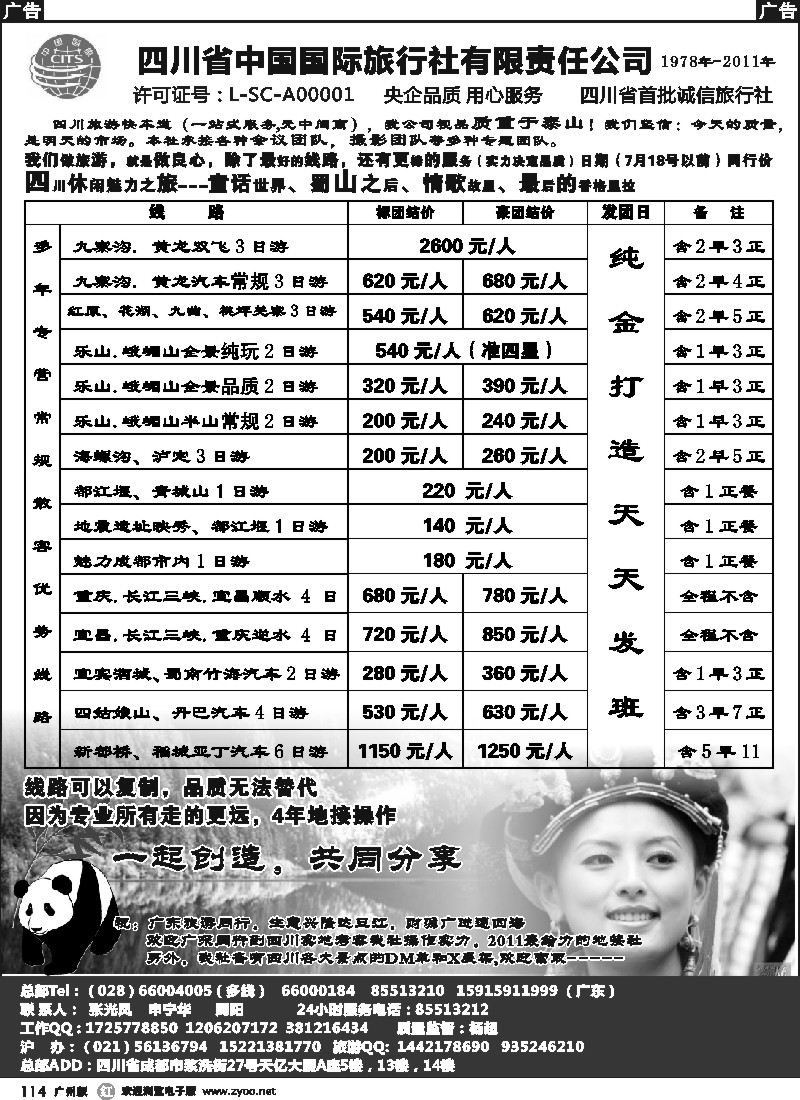 广告
广告
CITS
四川省中国国际旅行社有限责任公司 1978年-2011年
许可证号：L-SC-A00001 央企品质 用心服务 四川省首批诚信旅行社
四川旅游快车道（一站式服务,无中间商），我公司视品质重于泰山！我们坚信：今天的质量，
是明天的市场。本社承接各种会议团队，摄影团队等多种专题团队。
我们做旅游，就是做良心，除了最好的线路，还有更棒的服务（实力决定品质）日期（7月18号以前）同行价
四川休闲魅力之旅---童话世界、蜀山之后、情歌故里、最后的香格里拉
线 路 标团结价 豪团结价 发团日 备 注
多年专营常规散客优势线路
九寨沟．黄龙双飞3日游 2600元/人 含2早3正
九寨沟．黄龙汽车常规3日游 620元/人 680元/人 含2早4正
红原、花湖、九曲、桃坪羌寨3日游 540元/人 620元/人 含2早5正
乐山.峨嵋山全景纯玩2日游 540元/人（准四星） 含1早3正
乐山.峨嵋山全景品质2日游 320元/人 390元/人 含1早3正
乐山.峨嵋山半山常规2日游 200元/人 240元/人 含1早3正
海螺沟、泸定3日游 200元/人 260元/人 含2早5正
都江堰、青城山1日游 220 元/人 含1正餐
地震遗址映秀、都江堰1日游 140 元/人 含1正餐
魅力成都市内1日游 180 元/人 含1正餐
重庆.长江三峡.宜昌顺水 4 日 680元/人 780元/人 全程不含
宜昌.长江三峡.重庆逆水 4 日 720元/人 850元/人 全程不含
宜宾酒城、蜀南竹海汽车2日游 280元/人 360元/人 含1早3正
四姑娘山、丹巴汽车4日游 530元/人 630元/人 含3早7正
新都桥、稻城亚丁汽车6日游 1150元/人 1250元/人 含5早11
纯金打造天天天发班
线路可以复制，品质无法替代
因为专业所有走的更远，4年地接操作
一起创造，共同分享
祝：广东旅游同行，生意兴隆达三江，财源广进通四海
欢迎广东同行到四川实地考察我社操作实力，2011最给力的地接社
另外，我社备有四川各大景点的DM单和X展架,欢迎索取-----
总部Tel：（028）66004005（多线） 66000184 85513210 15915911999（广东）
联 系 人： 张光凤 申宁华 周阳 24小时服务电话：85513212
工作QQ：1725778850 1206207172 381216434 质量监督：杨超
沪 办：（021）56136794 15221381770 旅游QQ: 1442178690 935246210
总部ADD：四川省成都市浆洗街27号天亿大厦A座5楼，13楼，14楼
114 广州版 红 欢迎浏览电子版 www.zyoo.net